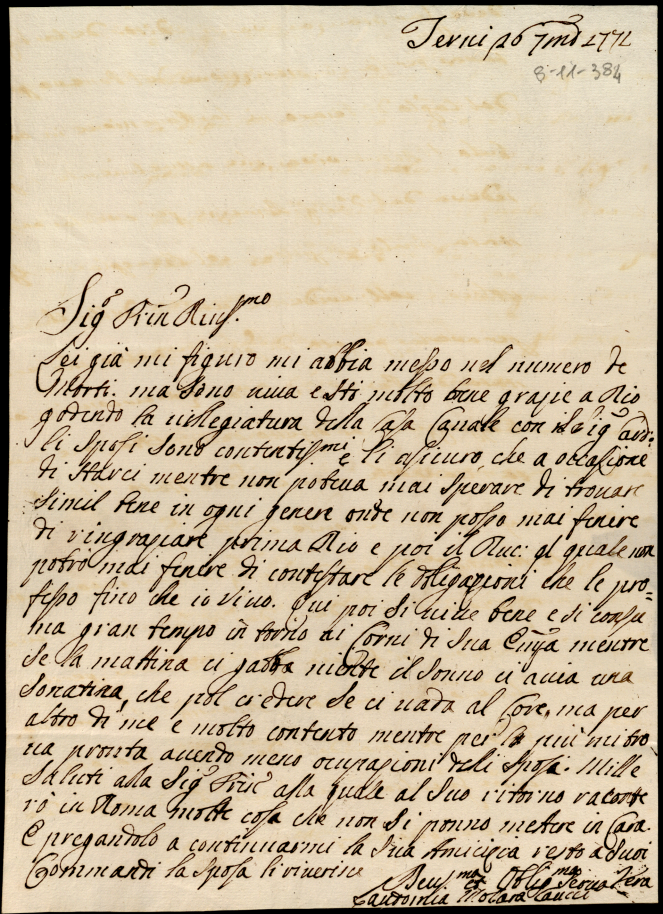 Terni 26 7mb 1771
8-11-384
Sig.e Prin Rius.mo
Lei già mi figuro mi abbia messo nel numero de
Morti. ma sono viva e sto molto bene grazie a Dio
godendo la villegiatura della Casa Canale con il Sig.e Card:
li sposi sono contentiss.mi e li assicuro che a occazione
di starci mentre non poteva mai sperare di trovare
simil bene in ogni genere onde non posso mai finire
di ringraziare prima Dio e poi il Duc: al quale non
potrò mai finire di contestare le obligazioni che le pro=
fesso fino che io vivo. Qui poi si vive bene e si consu
ma gran tempo in torno ai Corni di Sua mentre
se la mattina ci gabba niente il sonno ci avia una
sonatina, che pol credere se ci vada al Core, ma per
altro di me è molto contento mentre per lo più mi tro
va pronta avendo meno occupazioni deli sposi. Mille
saluti alla Sig.e Prin alla quale al suo ritorno raconte
rò in Roma molte cose che non si ponno mettere in Carta.
E pregandolo a continuarmi la sua Amicizia resto a suoi
Commandi la sposa li riverisce
ma Oblig.ma Serva Vera
Molara